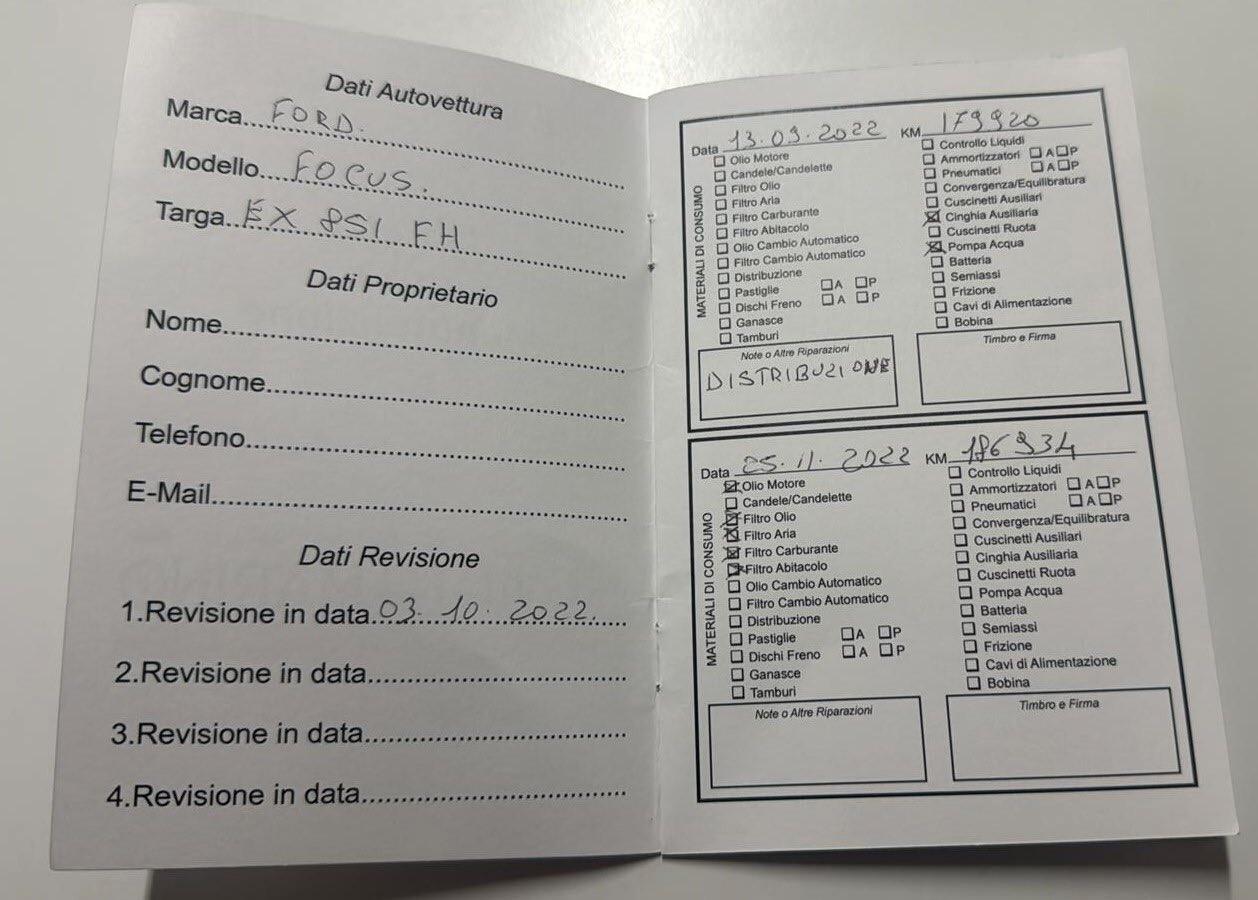 Dati Autovettura
Marca...FORD.
Modello...FOCUS.
Targa...EX 851 FH
Dati Proprietario
Nome...
Cognome...
Telefono...
E-Mail...
Dati Revisione
1.Revisione in data...03.10.2022.
2.Revisione in data...
3.Revisione in data...
4.Revisione in data...
Data 13.09.2022 KM 179920
MATERIALI DI CONSUMO
Olio Motore
Candele/Candelette
Filtro Olio
Filtro Aria
Filtro Carburante
Filtro Abitacolo
Olio Cambio Automatico
Filtro Cambio Automatico
Distribuzione
Pastiglie A P
Dischi Freno A P
Ganasce
Tamburi
Controllo Liquidi
Ammortizzatori A P
Pneumatici A P
Convergenza/Equilibratura
Cuscinetti Ausiliari
Cinghia Ausiliaria
Cuscinetti Ruota
Pompa Acqua
Batteria
Semiassi
Frizione
Cavi di Alimentazione
Bobina
Note o Altre Riparazioni
DISTRIBUZIONE
Timbro e Firma
Data 25.11.2022 KM 186934
MATERIALI DI CONSUMO
Olio Motore
Candele/Candelette
Filtro Olio
Filtro Aria
Filtro Carburante
Filtro Abitacolo
Olio Cambio Automatico
Filtro Cambio Automatico
Distribuzione
Pastiglie A P
Dischi Freno A P
Ganasce
Tamburi
Controllo Liquidi
Ammortizzatori A P
Pneumatici A P
Convergenza/Equilibratura
Cuscinetti Ausiliari
Cinghia Ausiliaria
Cuscinetti Ruota
Pompa Acqua
Batteria
Semiassi
Frizione
Cavi di Alimentazione
Bobina
Note o Altre Riparazioni
Timbro e Firma